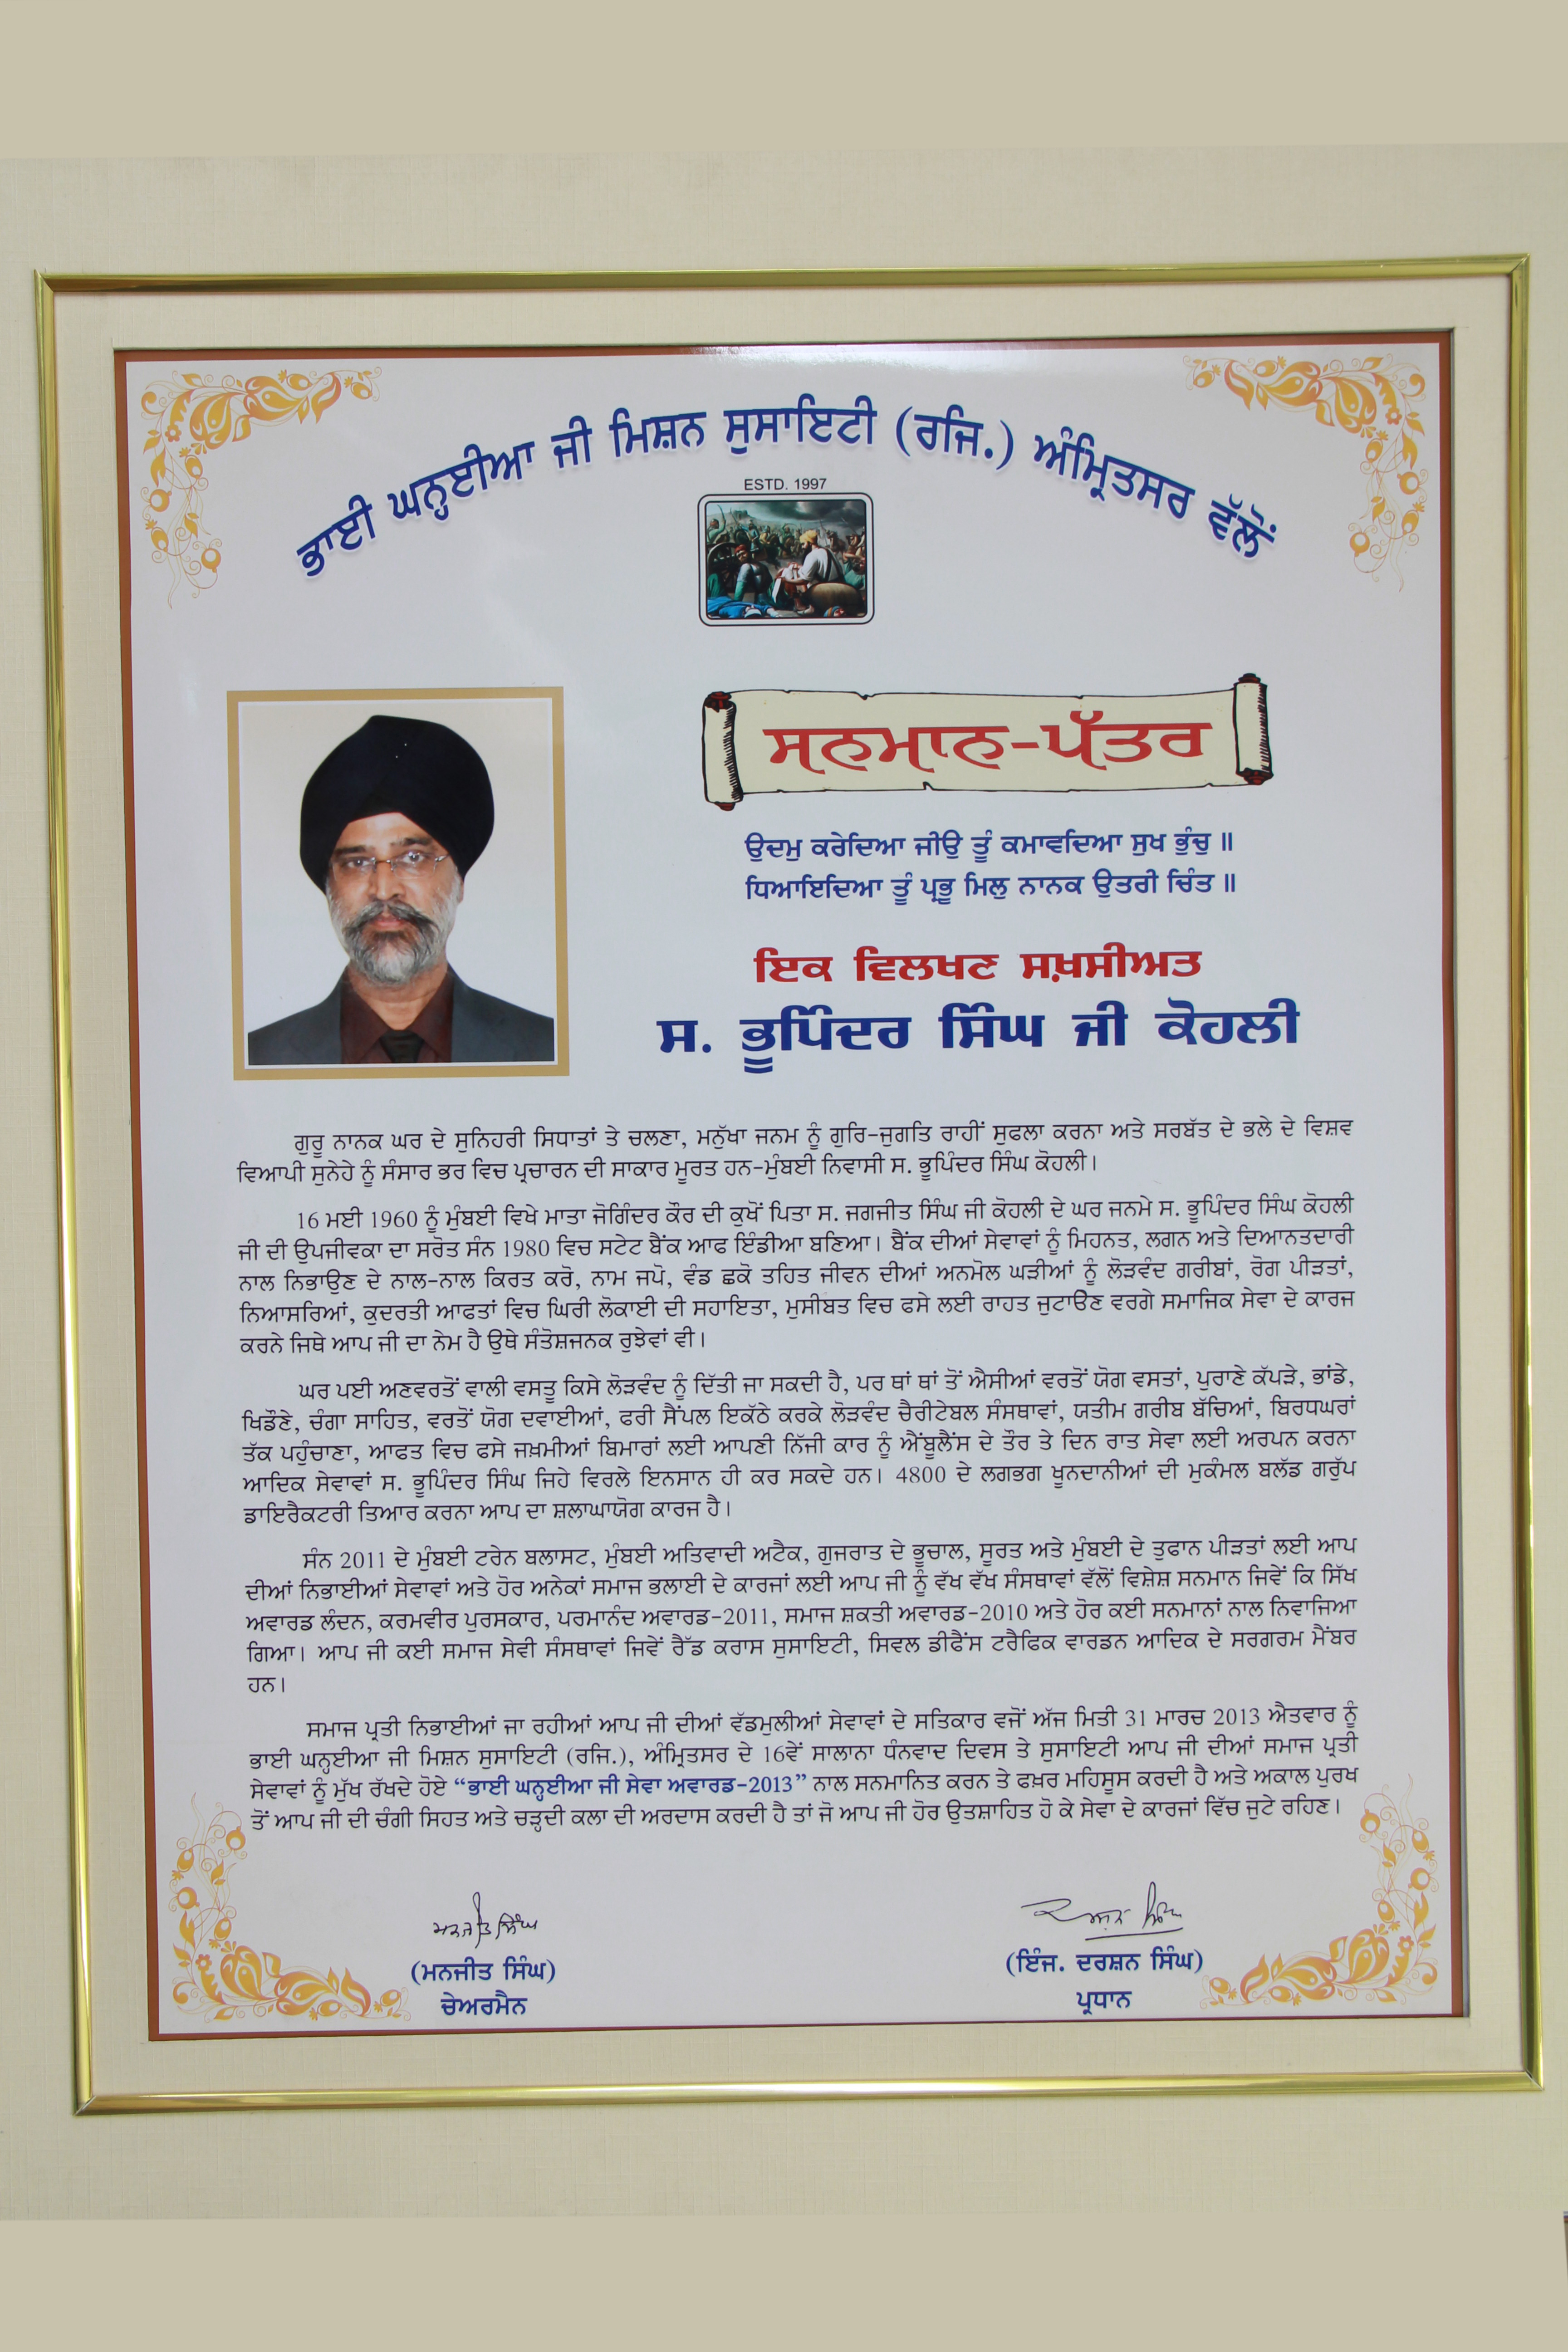 ਭਾਈ ਘਨ੍ਹਈਆ ਜੀ ਮਿਸ਼ਨ ਸੁਸਾਇਟੀ (ਰਜਿ.) ਅੰਮ੍ਰਿਤਸਰ ਵੱਲੋਂ
ESTD. 1997
ਸਨਮਾਨ-ਪੱਤਰ
ਉਦਮੁ ਕਰੇਦਿਆ ਜੀਉ ਤੂੰ ਕਮਾਵਦਿਆ ਸੁਖ ਭੁੰਚੁ ॥
ਧਿਆਇਦਿਆ ਤੂੰ ਪ੍ਰਭੂ ਮਿਲੁ ਨਾਨਕ ਉਤਰੀ ਚਿੰਤ ॥
ਇਕ ਵਿਲਖਣ ਸਖ਼ਸੀਅਤ
ਸ. ਭੂਪਿੰਦਰ ਸਿੰਘ ਜੀ ਕੋਹਲੀ
ਗੁਰੂ ਨਾਨਕ ਘਰ ਦੇ ਸੁਨਿਹਰੀ ਸਿਧਾਤਾਂ ਤੇ ਚਲਣਾ, ਮਨੁੱਖਾ ਜਨਮ ਨੂੰ ਗੁਰਿ-ਜੁਗਤਿ ਰਾਹੀਂ ਸੁਫਲਾ ਕਰਨਾ ਅਤੇ ਸਰਬੱਤ ਦੇ ਭਲੇ ਦੇ ਵਿਸ਼ਵ
ਵਿਆਪੀ ਸੁਨੇਹੇ ਨੂੰ ਸੰਸਾਰ ਭਰ ਵਿਚ ਪ੍ਰਚਾਰਨ ਦੀ ਸਾਕਾਰ ਮੂਰਤ ਹਨ-ਮੁੰਬਈ ਨਿਵਾਸੀ ਸ. ਭੂਪਿੰਦਰ ਸਿੰਘ ਕੋਹਲੀ।
16 ਮਈ 1960 ਨੂੰ ਮੁੰਬਈ ਵਿਖੇ ਮਾਤਾ ਜੋਗਿੰਦਰ ਕੌਰ ਦੀ ਕੁਖੋਂ ਪਿਤਾ ਸ. ਜਗਜੀਤ ਸਿੰਘ ਜੀ ਕੋਹਲੀ ਦੇ ਘਰ ਜਨਮੇ ਸ. ਭੂਪਿੰਦਰ ਸਿੰਘ ਕੋਹਲੀ
ਜੀ ਦੀ ਉਪਜੀਵਕਾ ਦਾ ਸਰੋਤ ਸੰਨ 1980 ਵਿਚ ਸਟੇਟ ਬੈਂਕ ਆਫ ਇੰਡੀਆ ਬਣਿਆ। ਬੈਂਕ ਦੀਆਂ ਸੇਵਾਵਾਂ ਨੂੰ ਮਿਹਨਤ, ਲਗਨ ਅਤੇ ਦਿਆਨਤਦਾਰੀ
ਨਾਲ ਨਿਭਾਉਣ ਦੇ ਨਾਲ-ਨਾਲ ਕਿਰਤ ਕਰੋ, ਨਾਮ ਜਪੋ, ਵੰਡ ਛਕੋ ਤਹਿਤ ਜੀਵਨ ਦੀਆਂ ਅਨਮੋਲ ਘੜੀਆਂ ਨੂੰ ਲੋੜਵੰਦ ਗਰੀਬਾਂ, ਰੋਗ ਪੀੜਤਾਂ,
ਨਿਆਸਰਿਆਂ, ਕੁਦਰਤੀ ਆਫਤਾਂ ਵਿਚ ਘਿਰੀ ਲੋਕਾਈ ਦੀ ਸਹਾਇਤਾ, ਮੁਸੀਬਤ ਵਿਚ ਫਸੇ ਲਈ ਰਾਹਤ ਜੁਟਾਉਣ ਵਰਗੇ ਸਮਾਜਿਕ ਸੇਵਾ ਦੇ ਕਾਰਜ
ਕਰਨੇ ਜਿਥੇ ਆਪ ਜੀ ਦਾ ਨੇਮ ਹੈ ਉਥੇ ਸੰਤੋਸ਼ਜਨਕ ਰੁਝੇਵਾਂ ਵੀ।
ਘਰ ਪਈ ਅਣਵਰਤੋਂ ਵਾਲੀ ਵਸਤੂ ਕਿਸੇ ਲੋੜਵੰਦ ਨੂੰ ਦਿੱਤੀ ਜਾ ਸਕਦੀ ਹੈ, ਪਰ ਥਾਂ ਥਾਂ ਤੋਂ ਐਸੀਆਂ ਵਰਤੋਂ ਯੋਗ ਵਸਤਾਂ, ਪੁਰਾਣੇ ਕੱਪੜੇ, ਭਾਂਡੇ,
ਖਿਡੌਣੇ, ਚੰਗਾ ਸਾਹਿਤ, ਵਰਤੋਂ ਯੋਗ ਦਵਾਈਆਂ, ਫਰੀ ਸੈਂਪਲ ਇਕੱਠੇ ਕਰਕੇ ਲੋੜਵੰਦ ਚੈਰੀਟੇਬਲ ਸੰਸਥਾਵਾਂ, ਯਤੀਮ ਗਰੀਬ ਬੱਚਿਆਂ, ਬਿਰਧਘਰਾਂ
ਤੱਕ ਪਹੁੰਚਾਣਾ, ਆਫਤ ਵਿਚ ਫਸੇ ਜਖ਼ਮੀਆਂ ਬਿਮਾਰਾਂ ਲਈ ਆਪਣੀ ਨਿੱਜੀ ਕਾਰ ਨੂੰ ਐਂਬੂਲੈਂਸ ਦੇ ਤੌਰ ਤੇ ਦਿਨ ਰਾਤ ਸੇਵਾ ਲਈ ਅਰਪਨ ਕਰਨਾ
ਆਦਿਕ ਸੇਵਾਵਾਂ ਸ. ਭੂਪਿੰਦਰ ਸਿੰਘ ਜਿਹੇ ਵਿਰਲੇ ਇਨਸਾਨ ਹੀ ਕਰ ਸਕਦੇ ਹਨ। 4800 ਦੇ ਲਗਭਗ ਖੂਨਦਾਨੀਆਂ ਦੀ ਮੁਕੰਮਲ ਬਲੱਡ ਗਰੁੱਪ
ਡਾਇਰੈਕਟਰੀ ਤਿਆਰ ਕਰਨਾ ਆਪ ਦਾ ਸ਼ਲਾਘਾਯੋਗ ਕਾਰਜ ਹੈ।
ਸੰਨ 2011 ਦੇ ਮੁੰਬਈ ਟਰੇਨ ਬਲਾਸਟ, ਮੁੰਬਈ ਅਤਿਵਾਦੀ ਅਟੈਕ, ਗੁਜਰਾਤ ਦੇ ਭੂਚਾਲ, ਸੂਰਤ ਅਤੇ ਮੁੰਬਈ ਦੇ ਤੁਫਾਨ ਪੀੜਤਾਂ ਲਈ ਆਪ
ਦੀਆਂ ਨਿਭਾਈਆਂ ਸੇਵਾਵਾਂ ਅਤੇ ਹੋਰ ਅਨੇਕਾਂ ਸਮਾਜ ਭਲਾਈ ਦੇ ਕਾਰਜਾਂ ਲਈ ਆਪ ਜੀ ਨੂੰ ਵੱਖ ਵੱਖ ਸੰਸਥਾਵਾਂ ਵੱਲੋਂ ਵਿਸ਼ੇਸ਼ ਸਨਮਾਨ ਜਿਵੇਂ ਕਿ ਸਿੱਖ
ਅਵਾਰਡ ਲੰਦਨ, ਕਰਮਵੀਰ ਪੁਰਸਕਾਰ, ਪਰਮਾਨੰਦ ਅਵਾਰਡ-2011, ਸਮਾਜ ਸ਼ਕਤੀ ਅਵਾਰਡ-2010 ਅਤੇ ਹੋਰ ਕਈ ਸਨਮਾਨਾਂ ਨਾਲ ਨਿਵਾਜਿਆ
ਗਿਆ। ਆਪ ਜੀ ਕਈ ਸਮਾਜ ਸੇਵੀ ਸੰਸਥਾਵਾਂ ਜਿਵੇਂ ਰੈੱਡ ਕਰਾਸ ਸੁਸਾਇਟੀ, ਸਿਵਲ ਡੀਫੈਂਸ ਟਰੈਫਿਕ ਵਾਰਡਨ ਆਦਿਕ ਦੇ ਸਰਗਰਮ ਮੈਂਬਰ
ਹਨ।
ਸਮਾਜ ਪ੍ਰਤੀ ਨਿਭਾਈਆਂ ਜਾ ਰਹੀਆਂ ਆਪ ਜੀ ਦੀਆਂ ਵੱਡਮੁਲੀਆਂ ਸੇਵਾਵਾਂ ਦੇ ਸਤਿਕਾਰ ਵਜੋਂ ਅੱਜ ਮਿਤੀ 31 ਮਾਰਚ 2013 ਐਤਵਾਰ ਨੂੰ
ਭਾਈ ਘਨ੍ਹਈਆ ਜੀ ਮਿਸ਼ਨ ਸੁਸਾਇਟੀ (ਰਜਿ.), ਅੰਮ੍ਰਿਤਸਰ ਦੇ 16ਵੇਂ ਸਾਲਾਨਾ ਧੰਨਵਾਦ ਦਿਵਸ ਤੇ ਸੁਸਾਇਟੀ ਆਪ ਜੀ ਦੀਆਂ ਸਮਾਜ ਪ੍ਰਤੀ
ਸੇਵਾਵਾਂ ਨੂੰ ਮੁੱਖ ਰੱਖਦੇ ਹੋਏ “ਭਾਈ ਘਨ੍ਹਈਆ ਜੀ ਸੇਵਾ ਅਵਾਰਡ-2013” ਨਾਲ ਸਨਮਾਨਿਤ ਕਰਨ ਤੇ ਫਖ਼ਰ ਮਹਿਸੂਸ ਕਰਦੀ ਹੈ ਅਤੇ ਅਕਾਲ ਪੁਰਖ
ਤੋਂ ਆਪ ਜੀ ਦੀ ਚੰਗੀ ਸਿਹਤ ਅਤੇ ਚੜ੍ਹਦੀ ਕਲਾ ਦੀ ਅਰਦਾਸ ਕਰਦੀ ਹੈ ਤਾਂ ਜੋ ਆਪ ਜੀ ਹੋਰ ਉਤਸ਼ਾਹਿਤ ਹੋ ਕੇ ਸੇਵਾ ਦੇ ਕਾਰਜਾਂ ਵਿੱਚ ਜੁਟੇ ਰਹਿਣ।
ਮਨਜੀਤ ਸਿੰਘ
(ਮਨਜੀਤ ਸਿੰਘ)
ਚੇਅਰਮੈਨ
(ਇੰਜ. ਦਰਸ਼ਨ ਸਿੰਘ)
ਪ੍ਰਧਾਨ